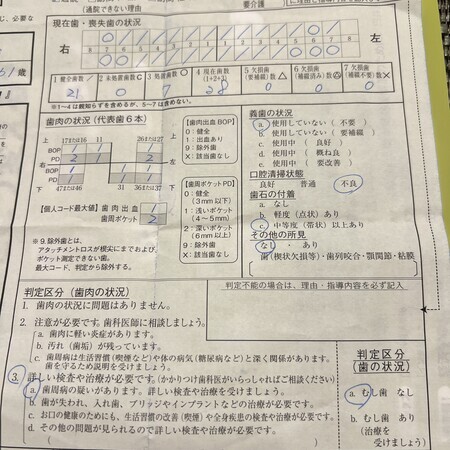 （通院できない理由
要介護
現在歯・喪失歯の状況
右
左
8 7 6 5 4 3 2 1 1 2 3 4 5 6 7 8
1 健全歯数/ 2 未処置歯数C 3 処置歯数○ 4 現在歯数 (1+2+3) 5 欠損歯（要補綴）数△ 6 欠損歯（補綴済み）数 7 欠損歯（補綴不要）数×
21 0 7 28
※1～4は親知らずを含めるが、5～7は含めない。
61歳
歯肉の状況（代表歯6本）
17または16 11 26または27
上 上
BOP
PD
右 左
BOP
PD
下 下
47または46 31 37または36
【個人コード最大値】歯肉出血 1
歯周ポケット 2
※9.除外歯とは、
アタッチメントロスが根尖にまでおよび、
ポケット測定できない歯。
最大コード、判定から除外する。
【歯肉出血BOP】
0：健全
1：出血あり
9：除外歯
X：該当歯なし
【歯周ポケットPD】
0：健全
（3mm以下）
1：浅いポケット
（4～5mm）
2：深いポケット
（6mm以上）
9：除外歯
X：該当歯なし
義歯の状況
a. 使用していない（不要）
b. 使用していない（要補綴）
c. 使用中（良好）
d. 使用中（概ね良）
e. 使用中（要改善）
口腔清掃状態
良好 普通 不良
歯石の付着
a. なし
b. 軽度（点状）あり
c. 中等度（帯状）以上あり
その他の所見
なし・あり
歯（楔状欠損等）・歯列咬合・顎関節・粘膜
判定不能の場合は、理由・指導内容を必ず記入
判定区分（歯肉の状況）
1. 歯肉の状況に問題はありません。
2. 注意が必要です。歯科医師に相談しましょう。
a. 歯肉に軽い炎症があります。
b. 汚れ（歯垢）が残っています。
c. 歯周病は生活習慣（喫煙など）や体の病気（糖尿病など）と深く関係があります。
歯を守るため受診しましょう。
3. 詳しい検査や治療が必要です。（かかりつけ歯科医がいらっしゃればご相談ください）
a. 歯周病の疑いがあります。詳しい検査や治療を受けましょう。
b. 歯が失われ、入れ歯、ブリッジやインプラントなどの治療が必要です。
c. お口の健康のためにも、生活習慣の改善（喫煙）や全身疾患の検査や治療が必要です。
d. その他の問題が見られるので詳しい検査や治療が必要です。
判定区分
（歯の状況）
a. むし歯 なし
b. むし歯 あり
（治療を
受けましょう）